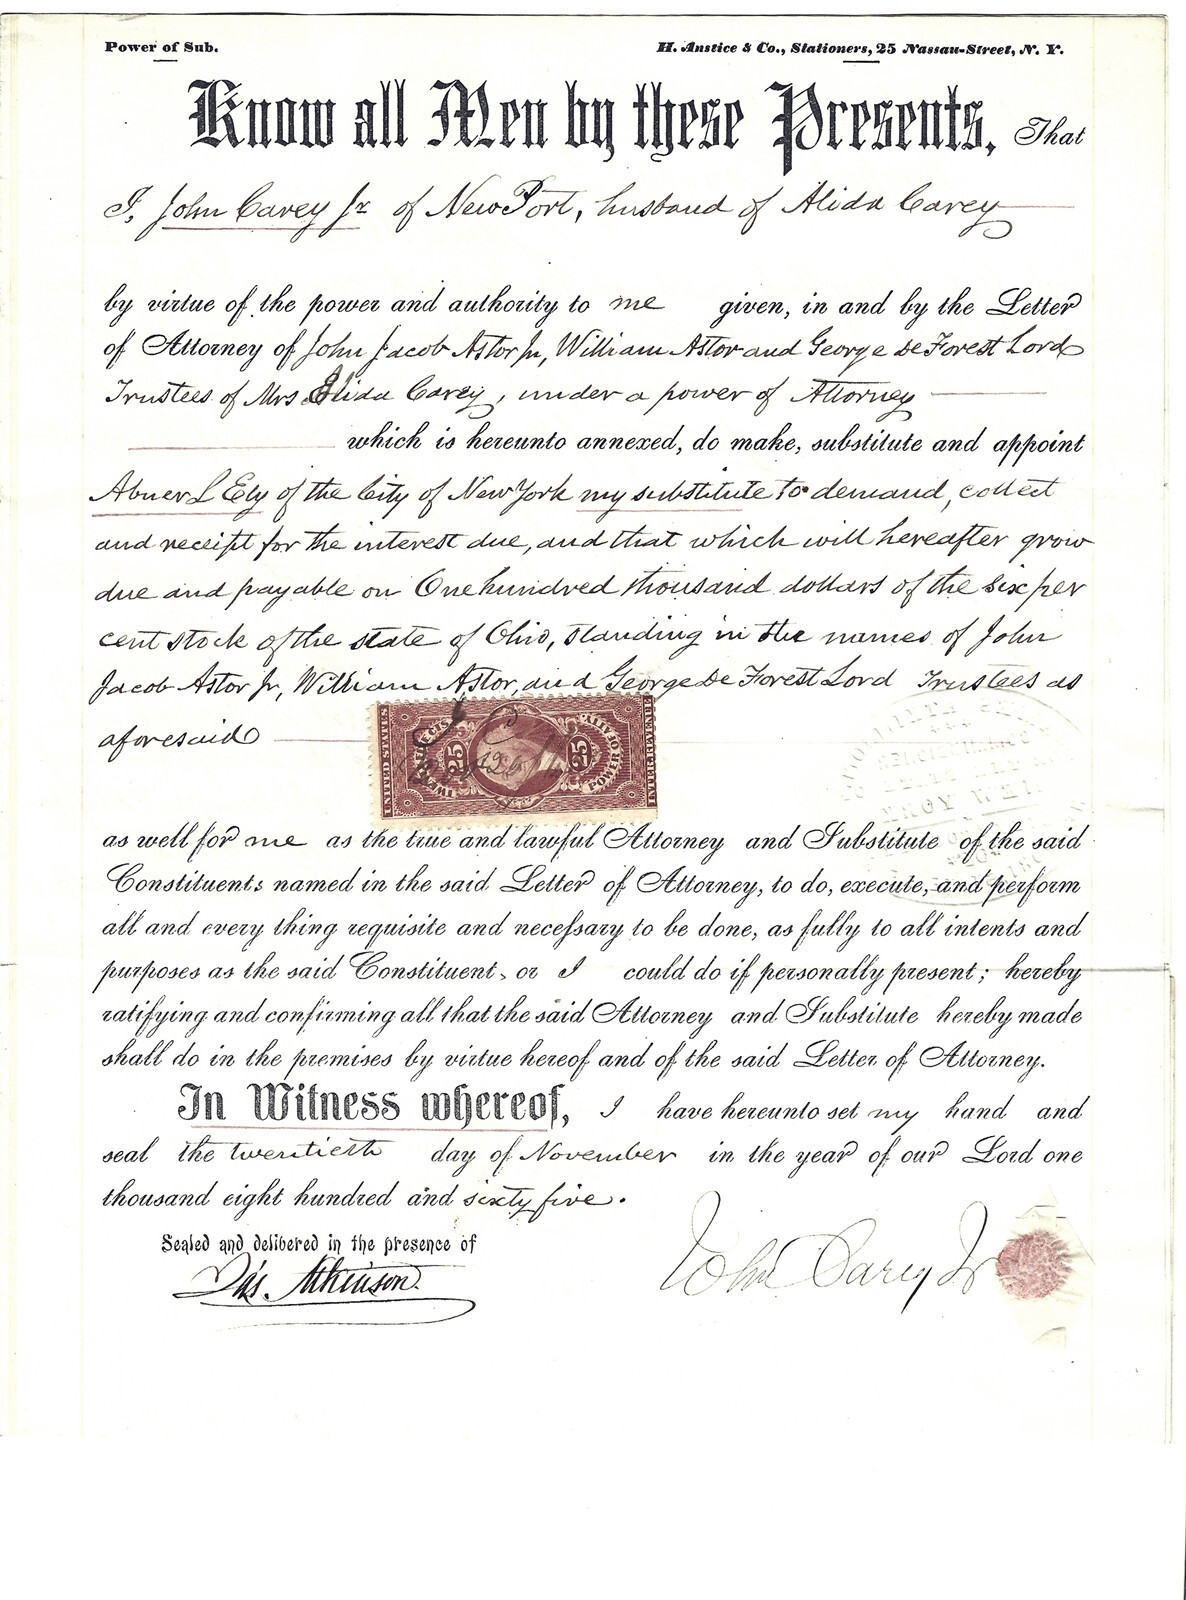 Power of Sub.
H. Anstice & Co., Stationers, 25 Nassau-Street, N. Y.
Know all Men by these Presents, That
I, John Carey Jr of NewPort, husband of Alida Carey
by virtue of the power and authority to me given, in and by the Letter
of Attorney of John Jacob Astor Jr, William Astor and George De Forest Lord
Trustees of Mrs Alida Carey, under a power of Attorney
which is hereunto annexed, do make, substitute and appoint
Abner L Ely of the City of New York my substitute to demand, collect
and receipt for the interest due, and that which will hereafter grow
due and payable on One hundred thousand dollars of the six per
cent stock of the state of Ohio, standing in the names of John
Jacob Astor Jr, William Astor, and George De Forest Lord Trustees as
aforesaid
UNITED STATES
25
25
POWER OF ATT'Y
INTER. REVENUE
as well for me as the true and lawful Attorney and Substitute of the said
Constituents named in the said Letter of Attorney, to do, execute, and perform
all and every thing requisite and necessary to be done, as fully to all intents and
purposes as the said Constituent, or I could do if personally present; hereby
ratifying and confirming all that the said Attorney and Substitute hereby made
shall do in the premises by virtue hereof and of the said Letter of Attorney.
In Witness whereof, I have hereunto set my hand and
seal the twentieth day of November in the year of our Lord one
thousand eight hundred and sixty five.
Sealed and delibered in the presence of
Jas. Atkinson.
John Carey Jr